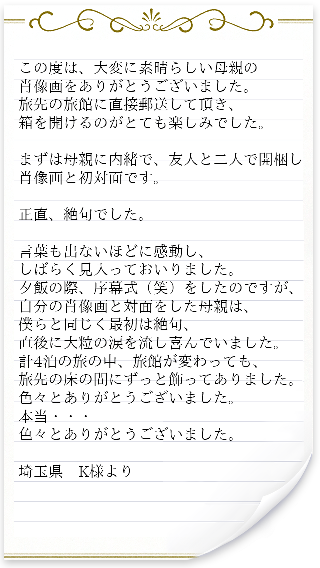 この度は、大変に素晴らしい母親の
肖像画をありがとうございました。
旅先の旅館に直接郵送して頂き、
箱を開けるのがとても楽しみでした。
まずは母親に内緒で、友人と二人で開梱し
肖像画と初対面です。
正直、絶句でした。
言葉も出ないほどに感動し、
しばらく見入っておいりました。
夕飯の際、序幕式（笑）をしたのですが、
自分の肖像画と対面をした母親は、
僕らと同じく最初は絶句、
直後に大粒の涙を流し喜んでいました。
計4泊の旅の中、旅館が変わっても、
旅先の床の間にずっと飾ってありました。
色々とありがとうございました。
本当・・・
色々とありがとうございました。
埼玉県　K様より